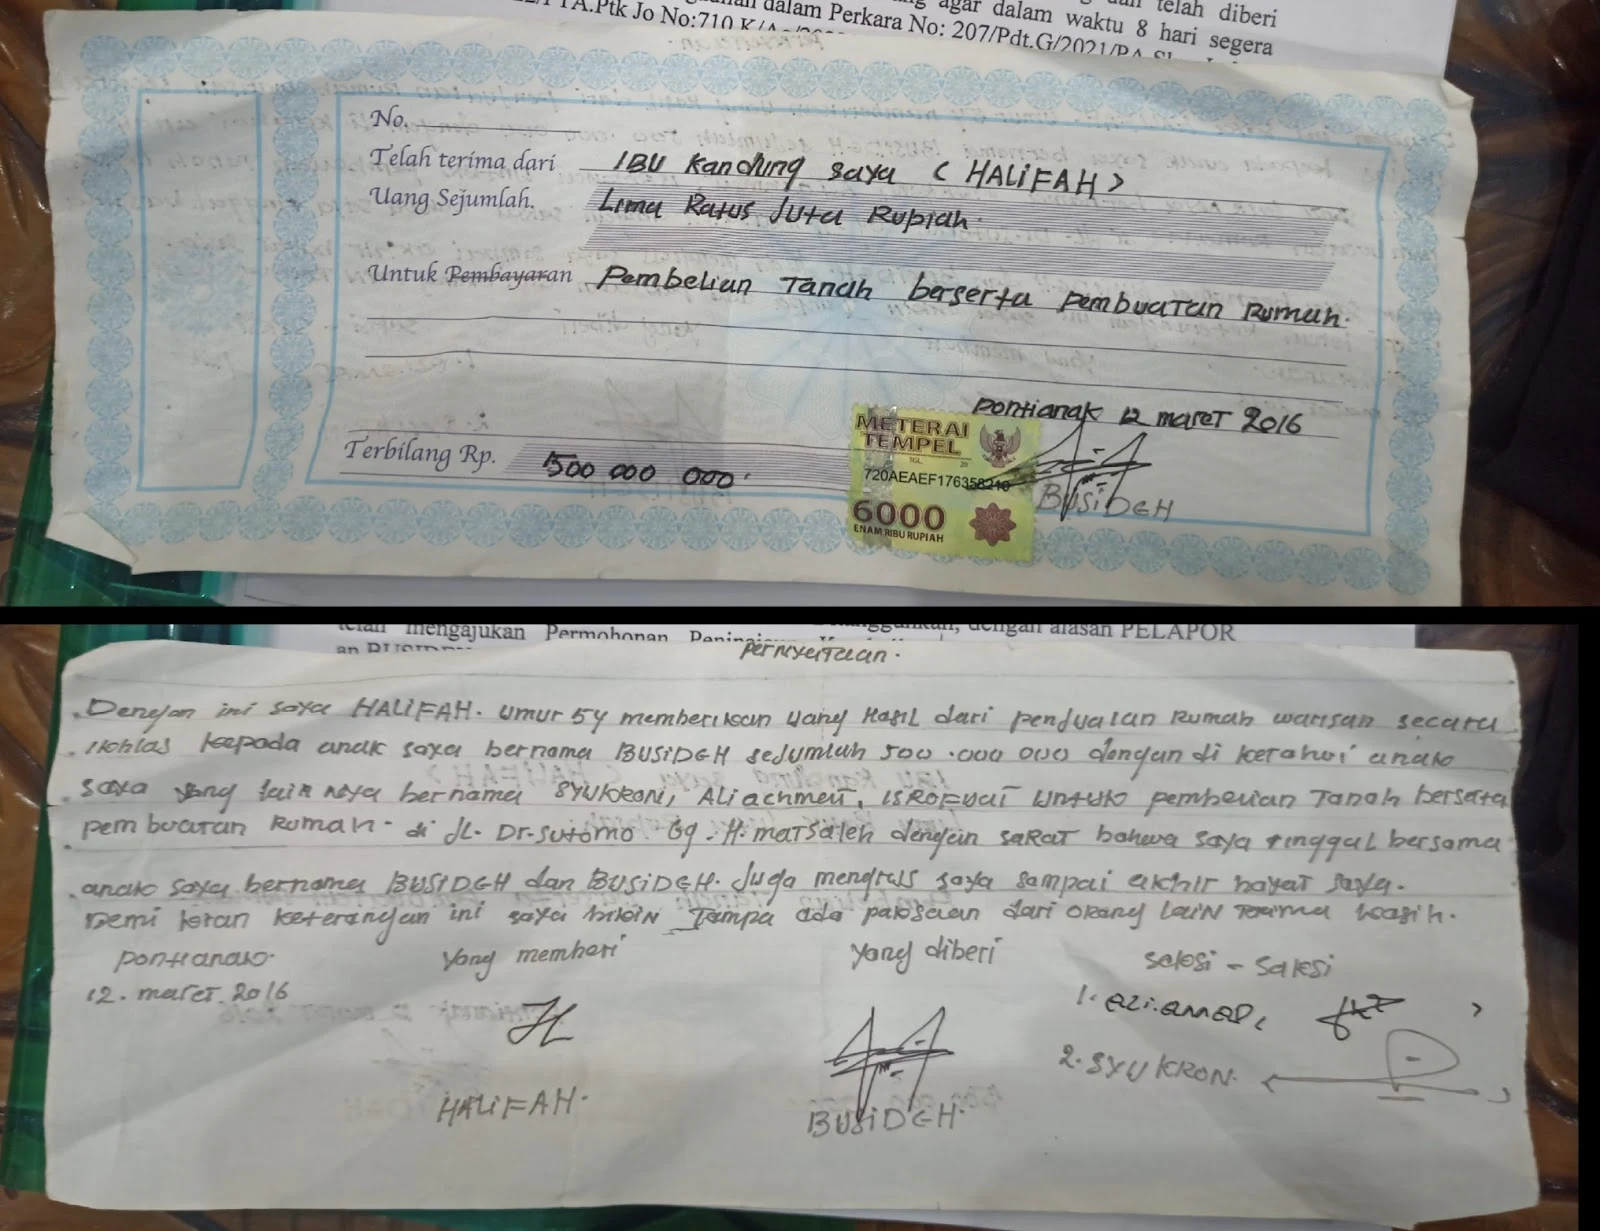 telah diberi
agar dalam waktu 8 hari segera
dalam Perkara No: 207/Pdt.G/2021/PA
PTA.Ptk Jo No:710 K/
No.
Telah terima dari IBU Kandung saya < HALIFAH >
Uang Sejumlah. Lima Ratus Juta Rupiah.
Untuk Pembayaran Pembelian Tanah berserta pembuatan Rumah.
Pontianak 12 maret 2016
METERAI
TEMPEL
TGL. 20
720AEAEF176358210
6000
ENAM RIBU RUPIAH
BUSIDEH
Terbilang Rp. 500 000 000
telah mengajukan Permohonan dengan alasan PELAPOR
Pernyataan.
Dengan ini saya HALIFAH. umur 54 memberikan uang Hasil dari penjualan Rumah warisan secara
ikhlas kepada anak saya bernama BUSIDEH sejumlah 500.000 000 dengan di ketahui anak
saya yang lain nya bernama SYUKRONI, ALi achmeit, untuk pembelian Tanah berserta
pembuatan Rumah. di JL. Dr. Sutomo. Gg. H. matsaleh dengan saRat bahwa saya tinggal bersama
anak saya bernama BUSIDEH dan BUSIDEH. Juga mengurus saya sampai akhir hayat saya.
Demi keterangan ini saya bikin Tampa ada paksaan dari orang Lain Terima kasih.
pontianak.
12. maret. 2016
Yang memberi
HALIFAH.
Yang diberi
BUSIDEH.
saksi - saksi
1.
2. SYUKRON.